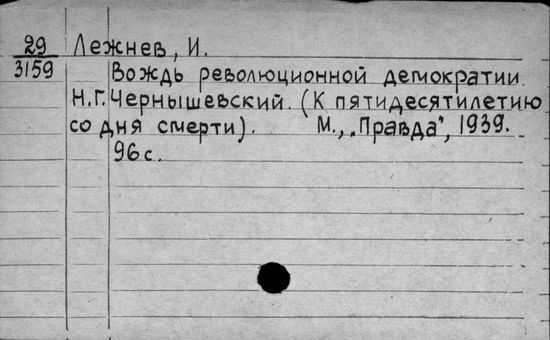 29 Лежнев, И.
3159 Вождь революционной демократии
Н.Г. Чернышевский. (К пятидесятилетию
со дня смерти). М., „Правда", 1939.
96 с.